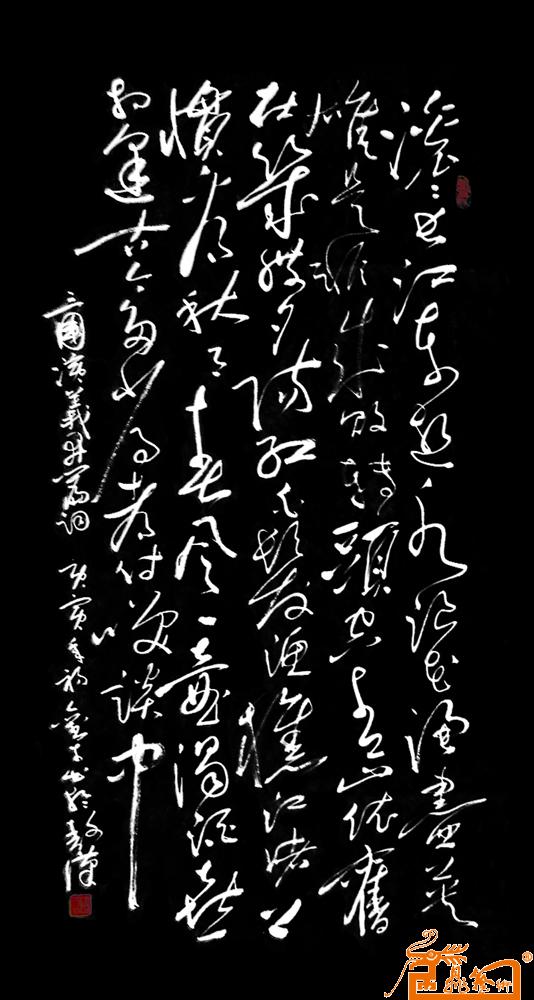 滚滚长江东逝水浪花淘盡英
雄是非成败转頭空青山依舊
在几度夕阳红白髮渔樵江渚上
惯看秋月春风一壶浊酒喜
相逢古今多少事都付笑谈中
三國演義開篇词 庚寅年初书於武漢